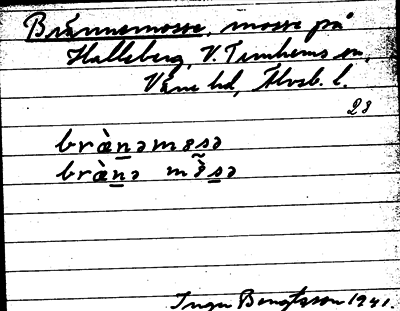 Brännemosse, mosse på
Hallsberg, V. Tunhems sn,
Väne hd, Älvsb. l.
23
brànəmɞsə
brànə mɞ̀sə
Inger Bengtsson 1941.